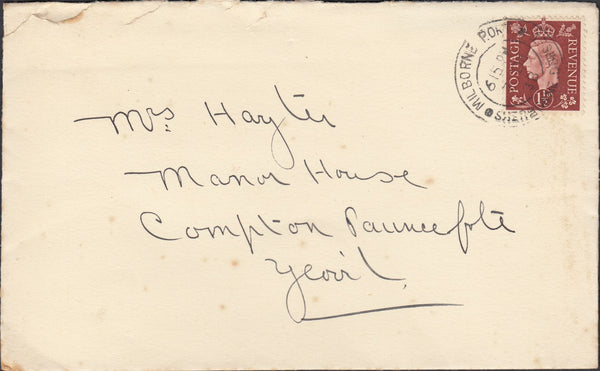 MILBORNE PORT
6 15 P
SHERBORNE
POSTAGE
REVENUE
1½D
Mrs Hayter
Manor House
Compton Pauncefote
Yeovil